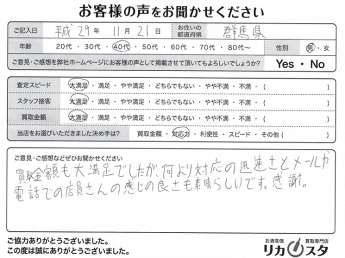 お客様の声をお聞かせください
ご記入日 平成29年 11月 21日 お住いの都道府県 群馬県
年齢 20代・30代・40代・50代・60代・70代・80代〜 性別 男・女
ご意見・ご感想を弊社ホームページにお客様の声として掲載させて頂いてもよろしいでしょうか? Yes・No
査定スピード 大満足・満足・やや満足・どちらでもない・やや不満・不満・( )
スタッフ接客 大満足・満足・やや満足・どちらでもない・やや不満・不満・( )
買取金額 大満足・満足・やや満足・どちらでもない・やや不満・不満・( )
当店をお選びいただきました決め手は? 買取金額・対応力・利便性・スピード・その他( )
ご意見・ご感想などぜひお聞かせください
買取金額も大満足でしたが、何より対応の迅速さとメールや
電話での店員さんの感じの良さも素晴らしいです。感謝。
ご協力ありがとうございました。
この度は誠にありがとうございました。
お酒高価買取専門店
リカスタ